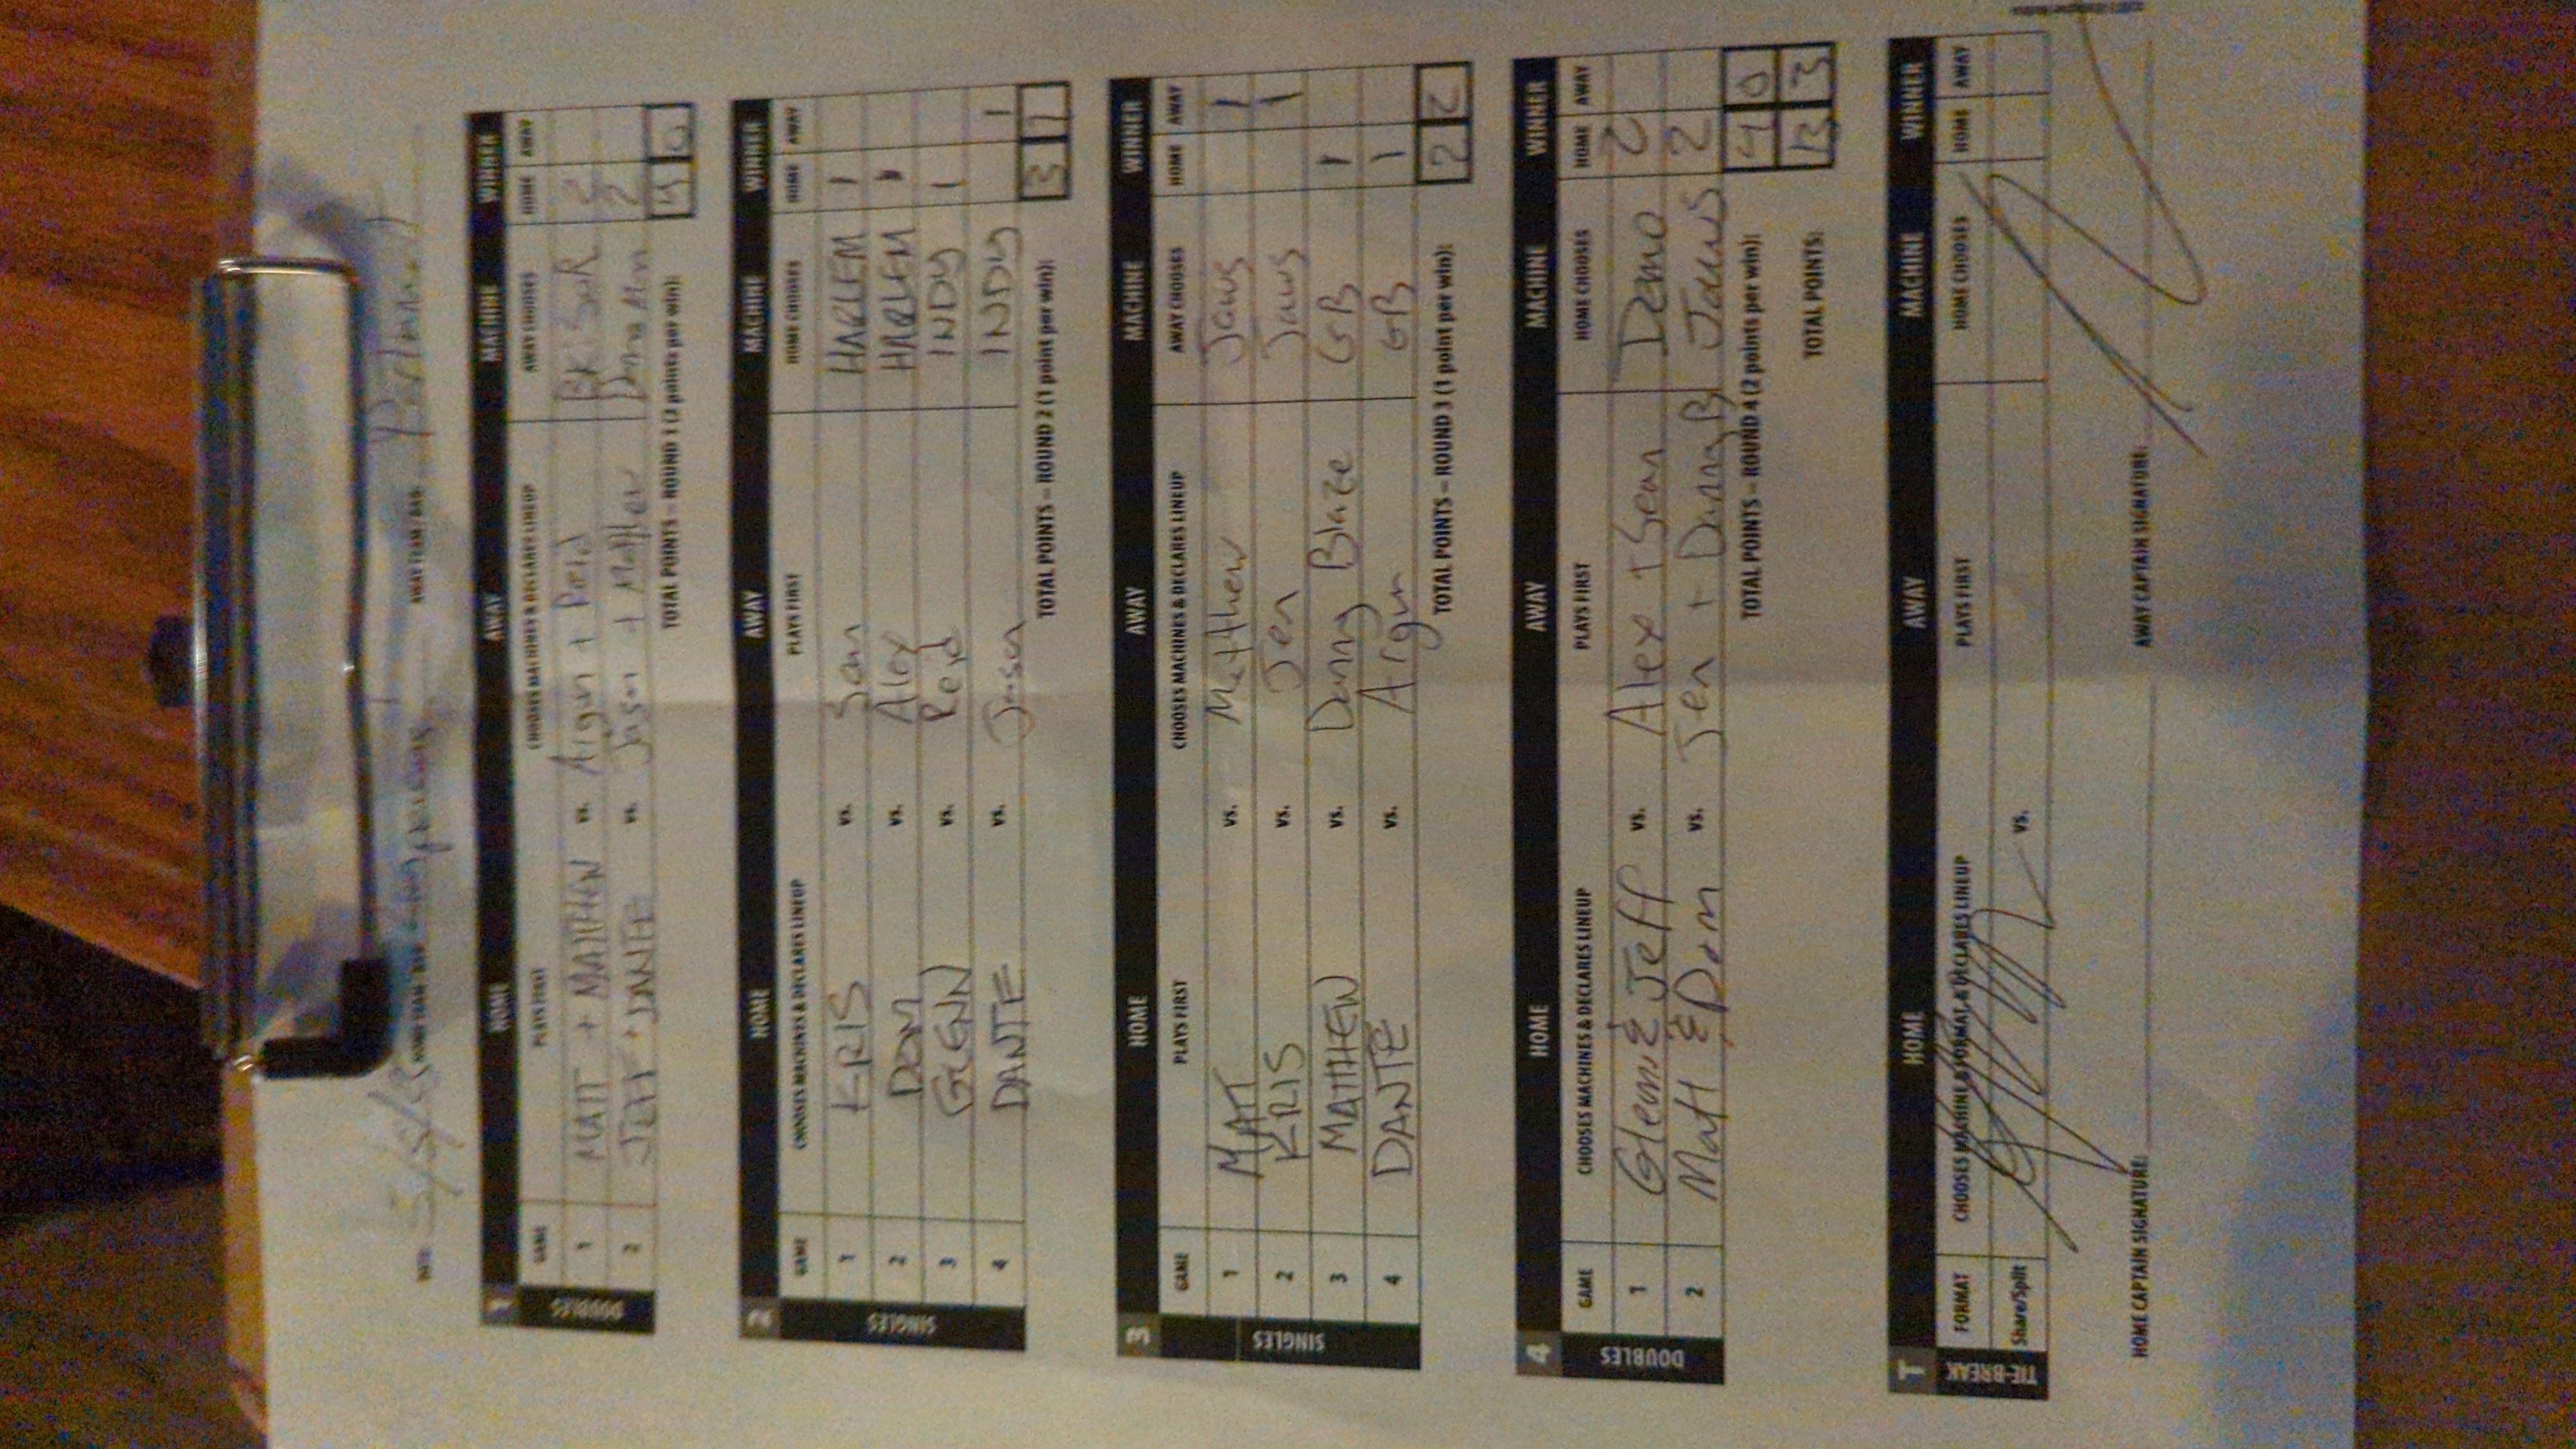 DATE: HOME TEAM / BAR: AWAY TEAM / BAR:
1 HOME AWAY MACHINE WINNER
GAME PLAYS FIRST CHOOSES MACHINES & DECLARES LINEUP AWAY CHOOSES HOME AWAY
DOUBLES
1 MATT + MATTHEW vs. Argun + Reid 2
2 JEFF + DANTE vs. Jason + Matthew 2
TOTAL POINTS – ROUND 1 (2 points per win): 4 0
2 HOME AWAY MACHINE WINNER
GAME CHOOSES MACHINES & DECLARES LINEUP PLAYS FIRST HOME CHOOSES HOME AWAY
SINGLES
1 KRIS vs. Sean HARLEM 1
2 DOM vs. Alex HARLEM 1
3 GLENN vs. Reid INDY 1
4 DANTE vs. Jason INDY 1
TOTAL POINTS – ROUND 2 (1 point per win): 3 1
3 HOME AWAY MACHINE WINNER
GAME PLAYS FIRST CHOOSES MACHINES & DECLARES LINEUP AWAY CHOOSES HOME AWAY
SINGLES
1 MATT vs. Matthew Jaws 1
2 KRIS vs. Jen Jaws 1
3 MATTHEW vs. Danny Blaze GB 1
4 DANTE vs. Argun GB 1
TOTAL POINTS – ROUND 3 (1 point per win): 2 2
4 HOME AWAY MACHINE WINNER
GAME CHOOSES MACHINES & DECLARES LINEUP PLAYS FIRST HOME CHOOSES HOME AWAY
DOUBLES
1 Glenn & Jeff vs. Alex + Sean Demo 2
2 Matt & Dom vs. Jen + Danny B Jaws 2
TOTAL POINTS – ROUND 4 (2 points per win): 4 0
TOTAL POINTS: 13 3
T HOME AWAY MACHINE WINNER
FORMAT CHOOSES MACHINE & FORMAT, & DECLARES LINEUP PLAYS FIRST HOME CHOOSES HOME AWAY
TIE-BREAK
Share/Split vs.
HOME CAPTAIN SIGNATURE: AWAY CAPTAIN SIGNATURE: